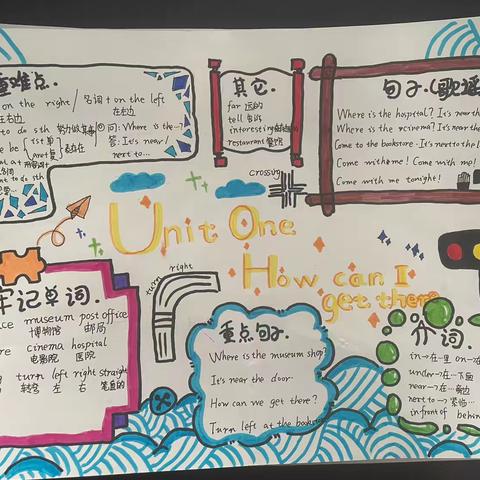 重难点.
on the right / 名词 + on the left
在右边 在左边
to do sth 努力做某事
问: Where is the...?
答: It's near /
next to...
其它.
far 远的
tell 告诉
interesting
restaurant 餐馆
句子.(歌谣
Where is the hospital? It's near the
Where is the cinema? It's near the
Come to the bookstore. It's next to the
Come with me! Come with me!
Come with me tonight!
crossing
Unit One
How can I
get there
turn right
牢记单词.
museum post office
博物馆 邮局
cinema hospital
电影院 医院
turn left right straight
转弯 左 右 笔直的
重点句子.
Where is the museum shop?
It's near the door.
How can we get there?
Turn left at the bookstore
介词.
in→在里 on→在
under→在…下面
near→在…旁边
next to→紧临…
in front of behind